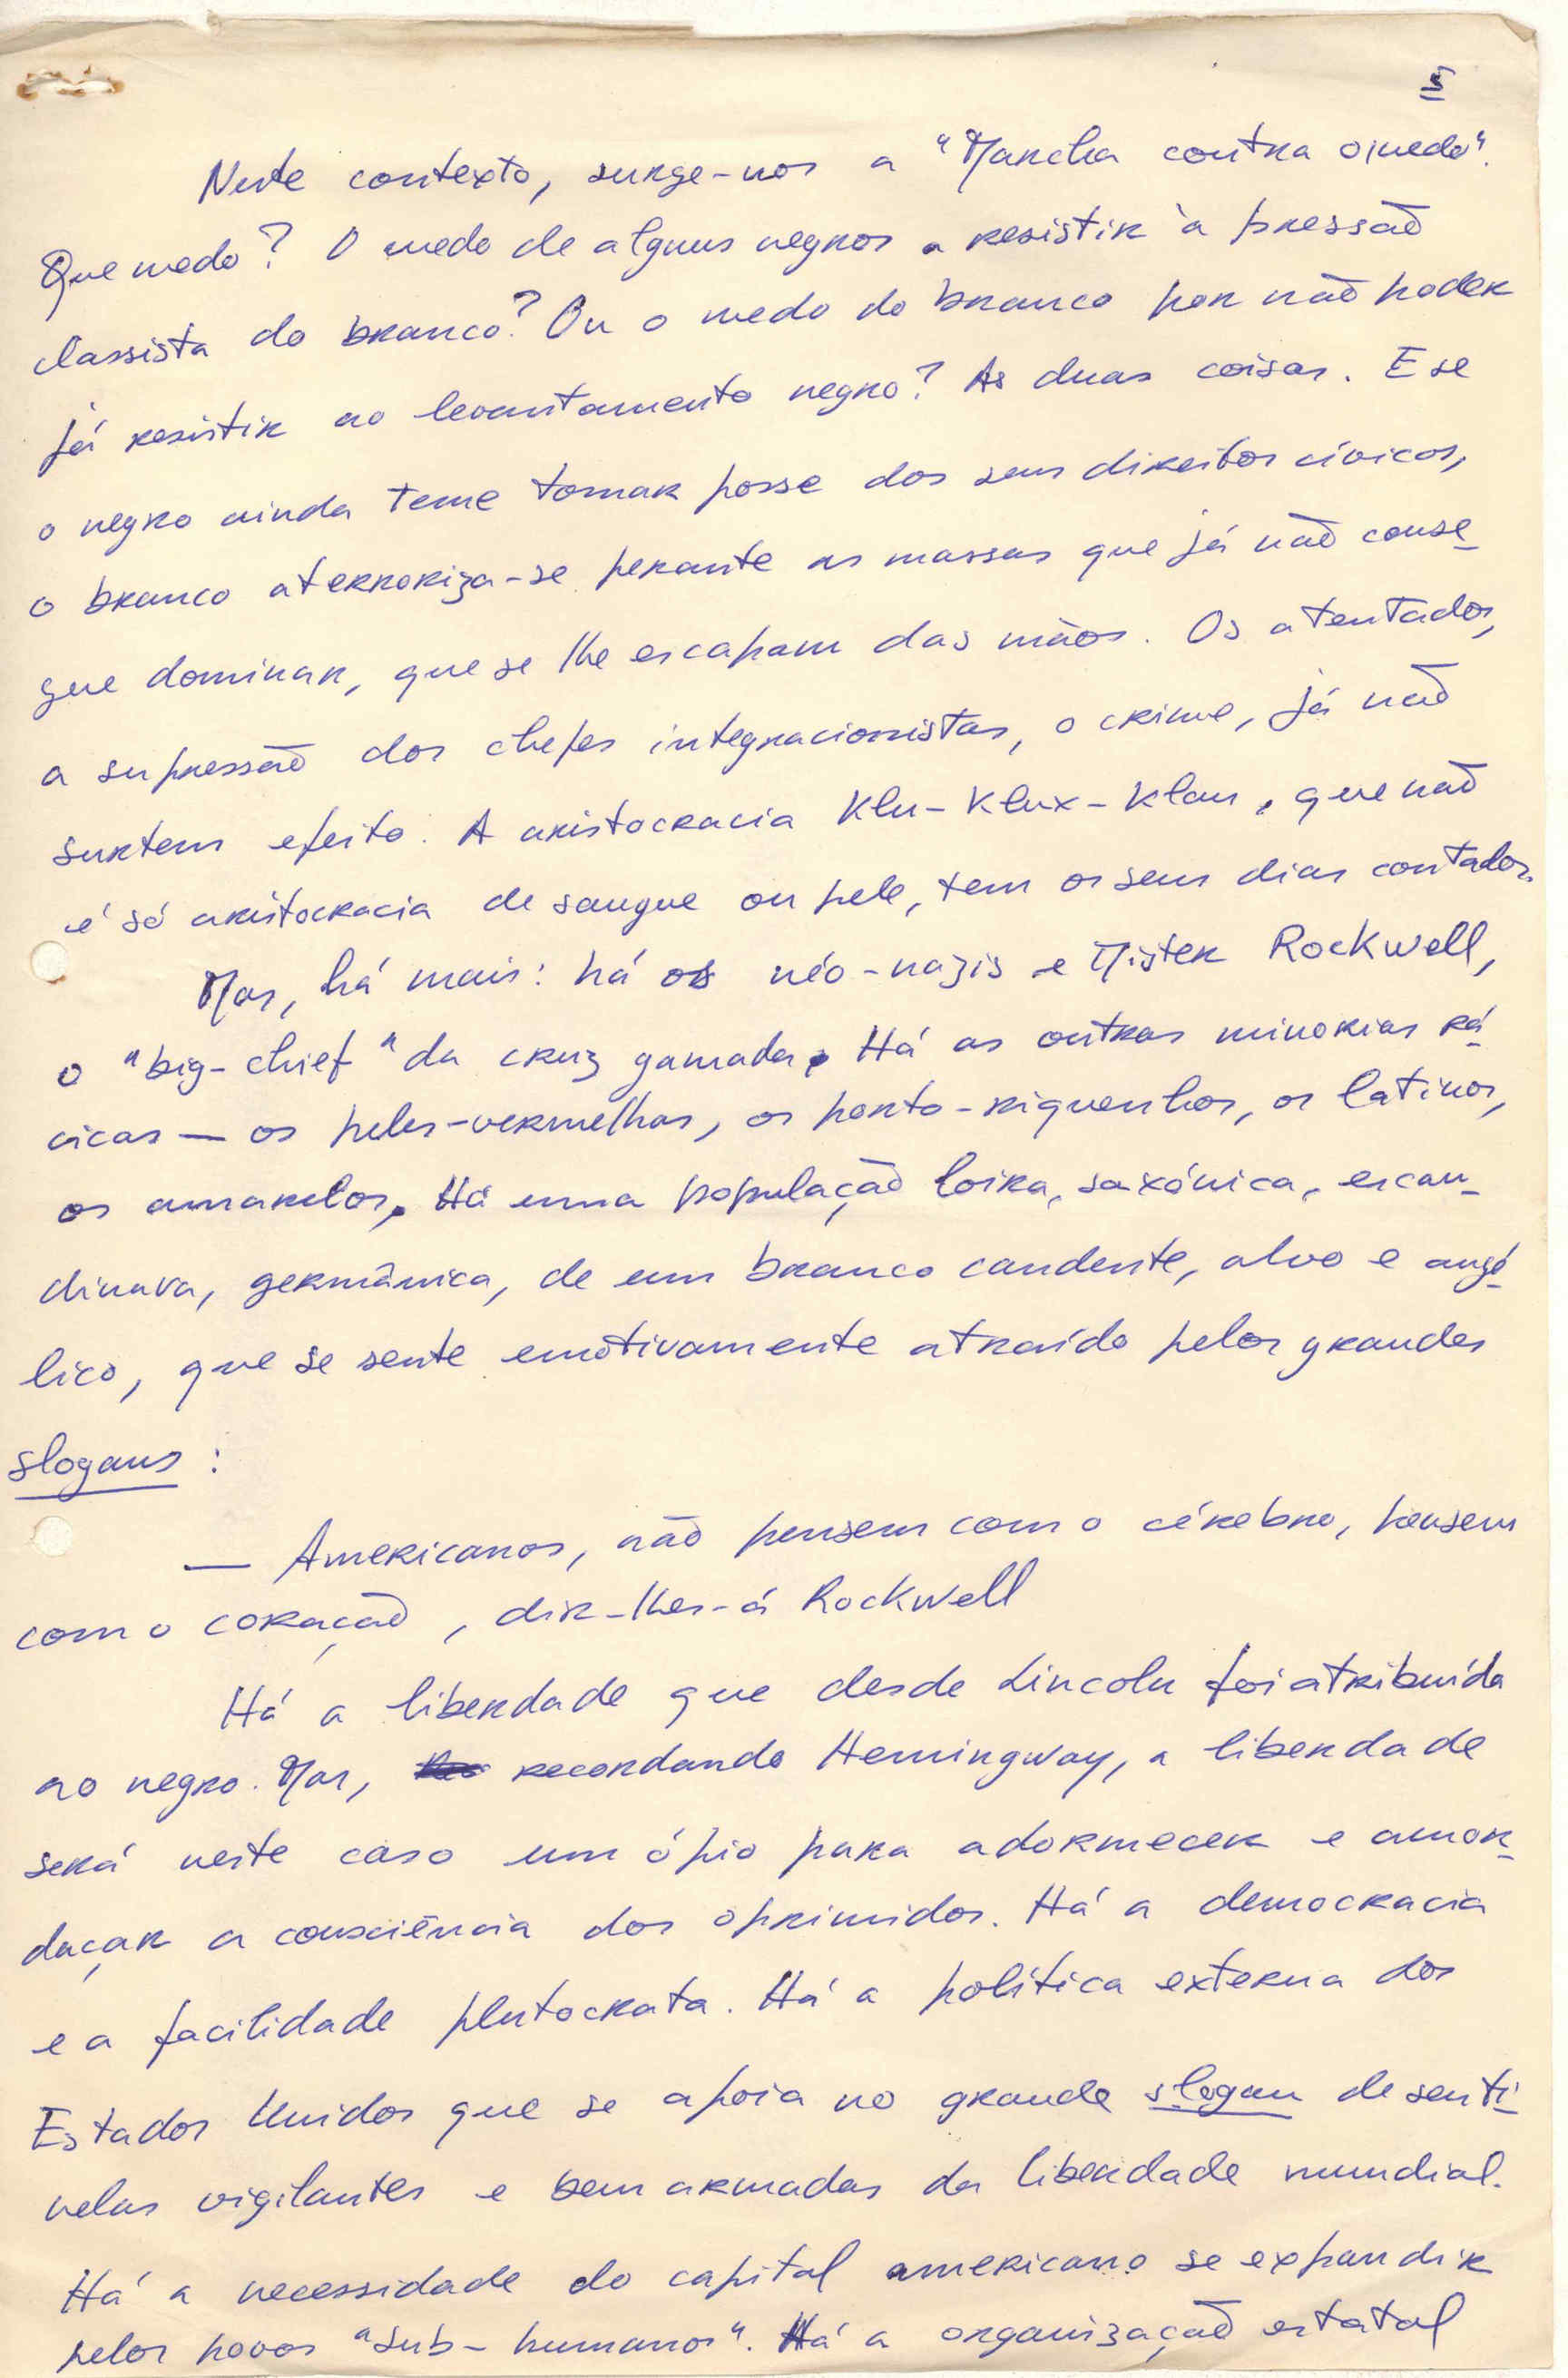 5
Neste contexto, surge-nos a "Marcha contra o medo".
Que medo? O medo de alguns negros a resistir à pressão
classista do branco? Ou o medo do branco por não poder
já resistir ao levantamento negro? As duas coisas. E se
o negro ainda teme tomar posse dos seus direitos cívicos,
o branco aterroriza-se perante as massas que já não conse-
gue dominar, que se lhe escapam das mãos. Os atentados,
a supressão dos chefes integracionistas, o crime, já não
surtem efeito. A aristocracia Klu-Klux-Klan, que não
é só aristocracia de sangue ou pele, tem os seus dias contados.
Mas, há mais: há os néo-nazis e Mister Rockwell,
o "big-chief" da cruz gamada. Há as outras minorias rá-
cicas — os peles-vermelhas, os porto-riquenhos, os latinos,
os amarelos. Há uma população loira, saxónica, escan-
dinava, germânica, de um branco candente, alvo e angé-
lico, que se sente emotivamente atraído pelos grandes
slogans :
— Americanos, não pensem com o cérebro, pensem
com o coração, dir-lhes-á Rockwell
Há a liberdade que desde Lincoln foi atribuída
ao negro. Mas, recordando Hemingway, a liberdade
será neste caso um ópio para adormecer e amor-
daçar a consciência dos oprimidos. Há a democracia
e a facilidade plutocrata. Há a política externa dos
Estados Unidos que se apoia no grande slogan de senti-
nelas vigilantes e bem armadas da liberdade mundial.
Há a necessidade do capital americano se expandir
pelos povos "sub-humanos". Há a organização estatal